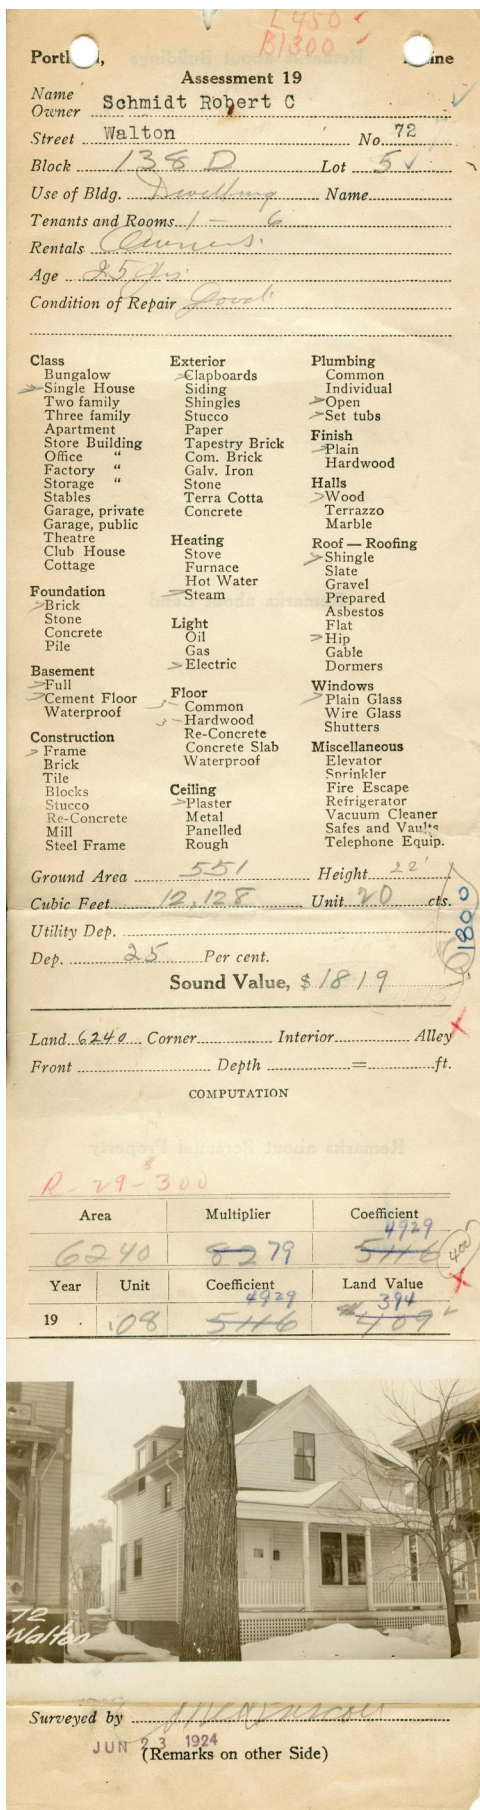 L 450
B1300
Portl d, ine
Assessment 19
Name
Owner Schmidt Robert C
Street Walton No. 72
Block 138 D Lot 5
Use of Bldg. Dwelling Name
Tenants and Rooms 1 — 6
Rentals Owners.
Age 25 yrs
Condition of Repair Good
Class
Bungalow
Single House
Two family
Three family
Apartment
Store Building
Office "
Factory "
Storage "
Stables
Garage, private
Garage, public
Theatre
Club House
Cottage
Foundation
Brick
Stone
Concrete
Pile
Basement
Full
Cement Floor
Waterproof
Construction
Frame
Brick
Tile
Blocks
Stucco
Re-Concrete
Mill
Steel Frame
Exterior
Clapboards
Siding
Shingles
Stucco
Paper
Tapestry Brick
Com. Brick
Galv. Iron
Stone
Terra Cotta
Concrete
Heating
Stove
Furnace
Hot Water
Steam
Light
Oil
Gas
Electric
Floor
Common
Hardwood
Re-Concrete
Concrete Slab
Waterproof
Ceiling
Plaster
Metal
Panelled
Rough
Plumbing
Common
Individual
Open
Set tubs
Finish
Plain
Hardwood
Halls
Wood
Terrazzo
Marble
Roof — Roofing
Shingle
Slate
Gravel
Prepared
Asbestos
Flat
Hip
Gable
Dormers
Windows
Plain Glass
Wire Glass
Shutters
Miscellaneous
Elevator
Sprinkler
Fire Escape
Refrigerator
Vacuum Cleaner
Safes and Vaults
Telephone Equip.
Ground Area 551 Height 22'
Cubic Feet 12,128 Unit 20 cts.
Utility Dep.
1800
Dep. 25 Per cent.
Sound Value, $ 1819
Land 6240 Corner Interior Alley
Front Depth = ft.
COMPUTATION
R-29-$300
Area Multiplier Coefficient
4929
6240 82 79 5116
400
Year Unit Coefficient Land Value
4929 394
19 . .08 5116 409
72
Walton
Surveyed by
JUN 23 1924
(Remarks on other Side)